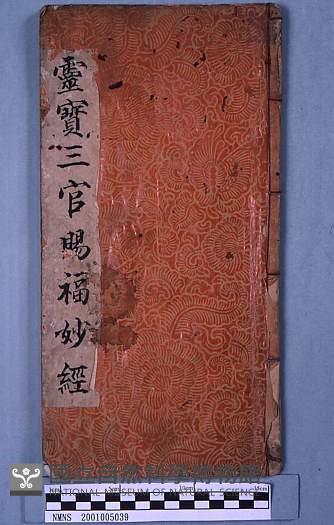 靈寶三官賜福妙經
國立自然科學博物館
NATIONAL MUSEUM OF NATURAL SCIENCE
NMNS 2001005039